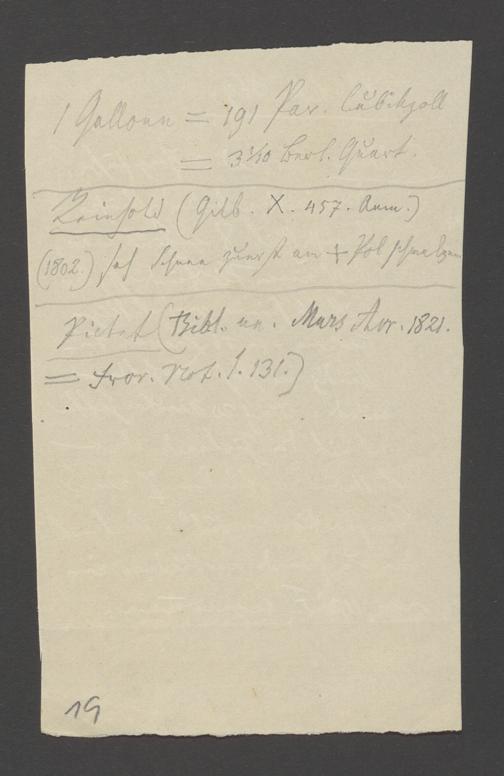 1 Gallone = 191 Par. Cubikzoll
= 3 3/10 Berl. Quart.
Reinhold (Gilb. X. 457. Anm.)
(1802.) sah Schnee zuerst am + Pol schmelzen
Pictet (Bibl. un. Mars Avr. 1821.
= Fror. Not. I. 131.)
19